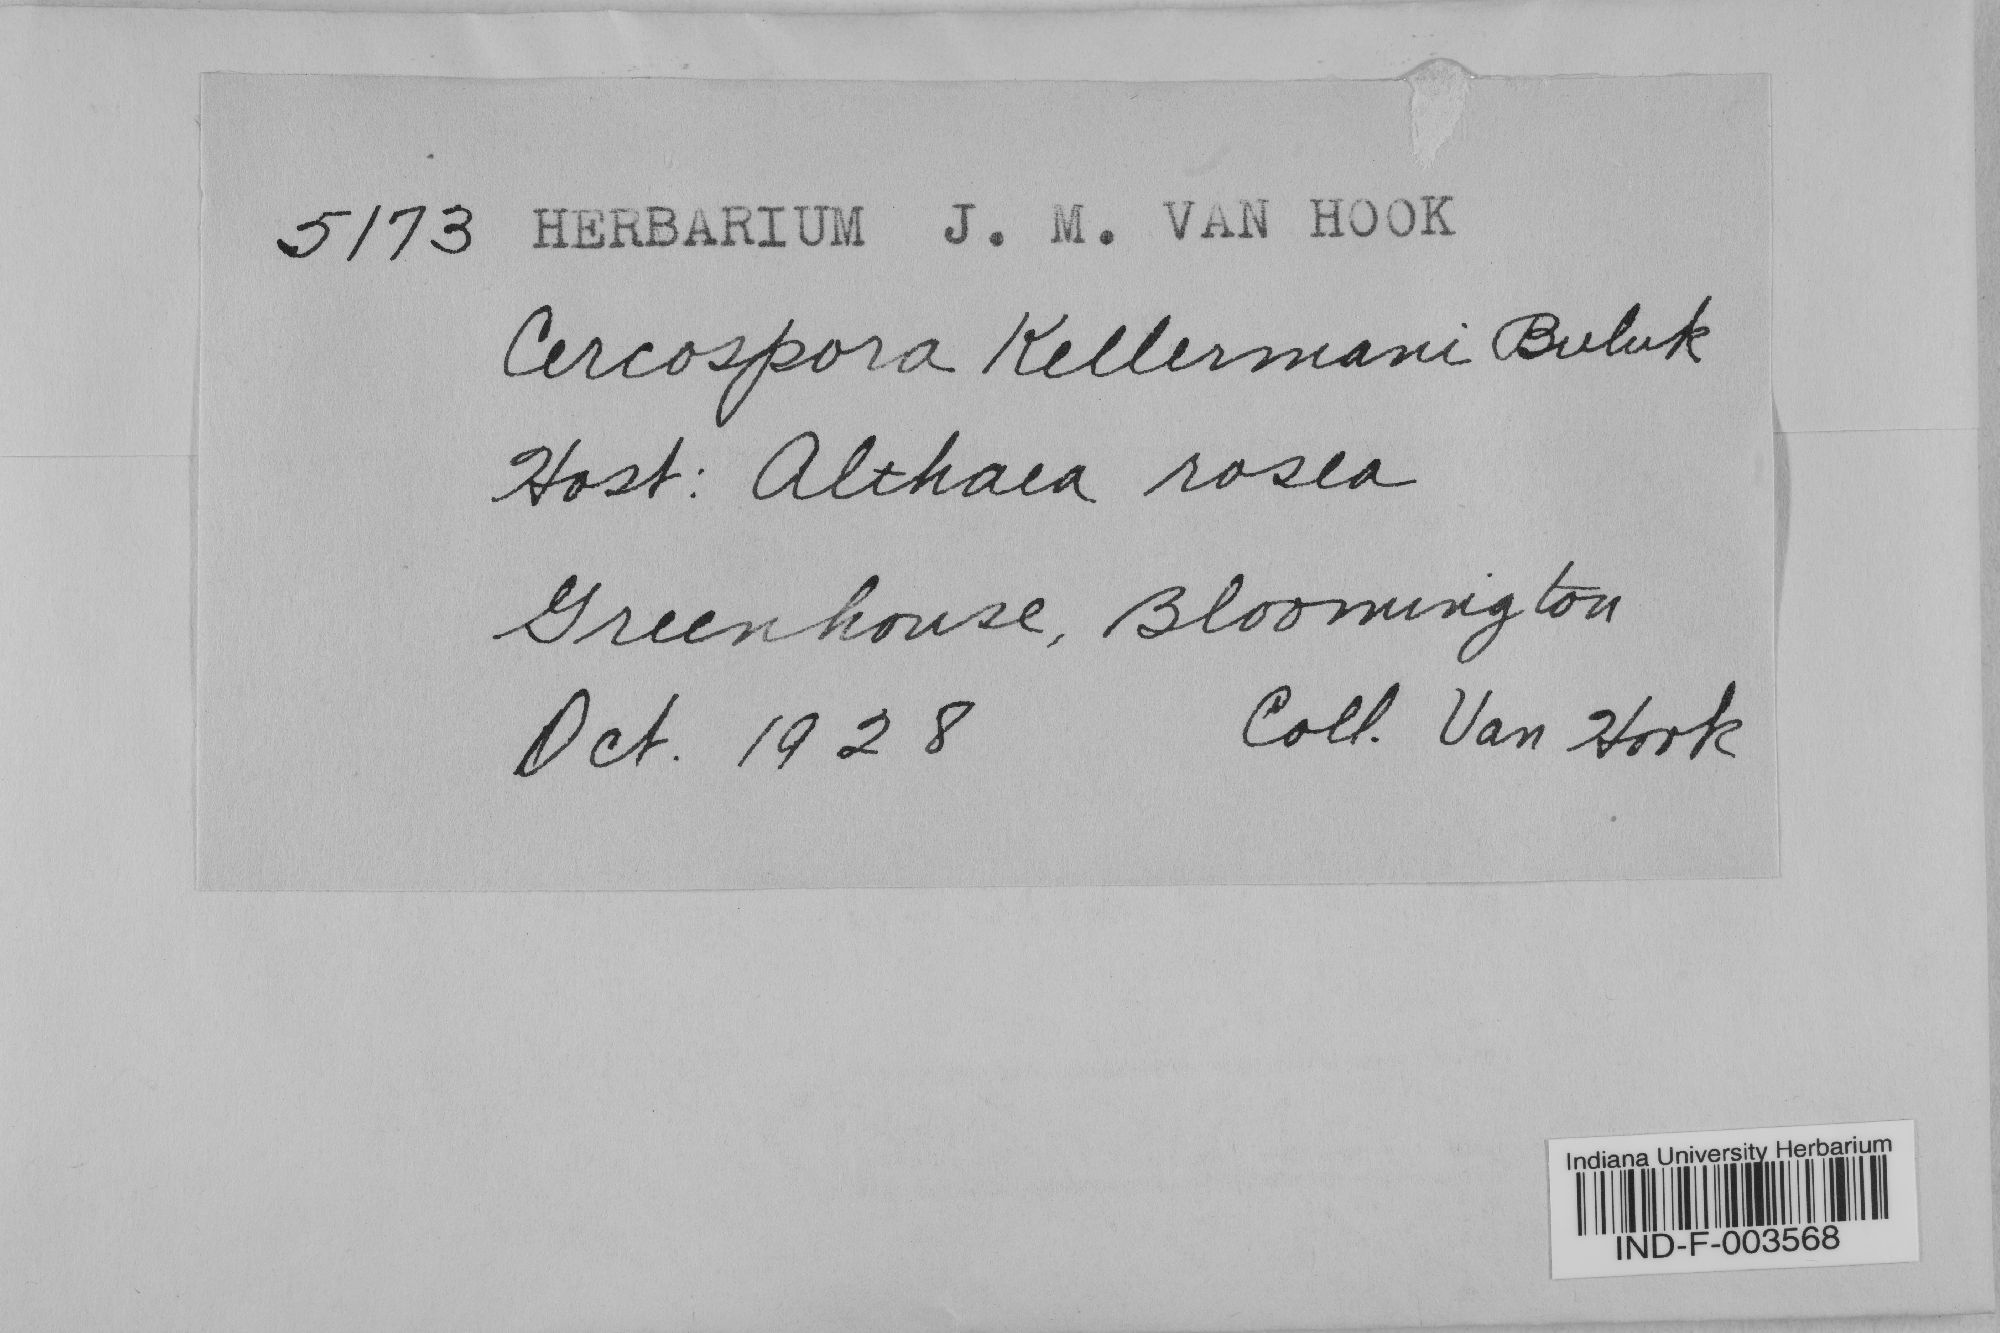 5173 HERBARIUM J. M. VAN HOOK
Cercospora Kellermani Bubuk
Host: Althaea rosea
Greenhouse, Bloomington
Oct. 1928 Coll. Van Hook
Indiana University Herbarium
IND-F-003568